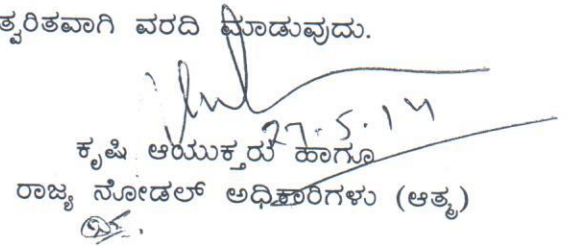 ತ್ವರಿತವಾಗಿ ವರದಿ ಮಾಡುವುದು.
27.5.14
ಕೃಷಿ ಆಯುಕ್ತರು ಹಾಗೂ
ರಾಜ್ಯ ನೋಡಲ್ ಅಧಿಕಾರಿಗಳು (ಆತ್ಮ)